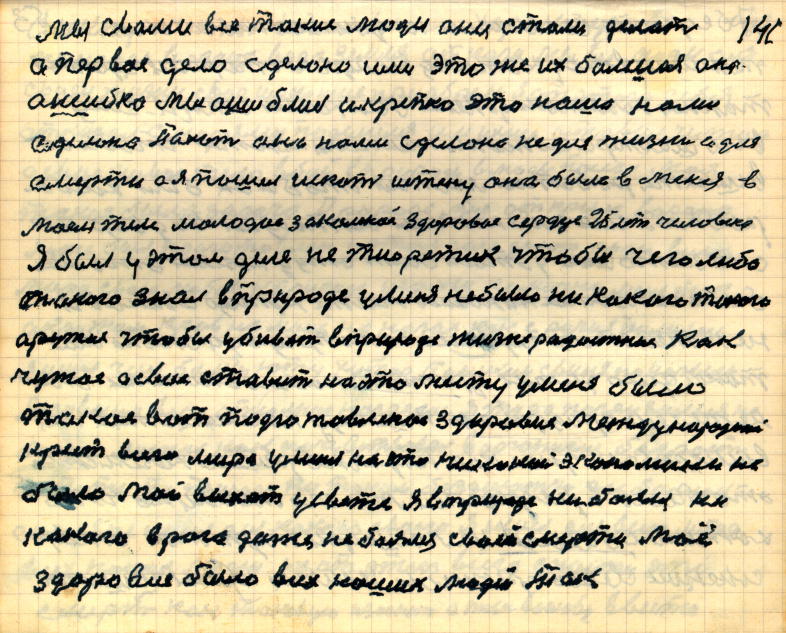 мы свами все такие люди они стали делать 146
а первае дело сделоно ими это же их балшая
ашибка мы ашиблис икрепко это наша нами
сделона нами сделона не для жизни а для
смерти а я пошел искат истену она была в меня в
моем теле молодое закалкой здоровое сердце 25 лет человека
Я был у этом деле не тиоретик чтобы чего либо
такого знал вприроде уменя небыло ни какого такого
аружия чтобы убиват вприроде жизнерадостные как
чужое а свое ставит на это места уменя было
такое вот подготовленое здоровие международной
крест всего мира уменя на это никакой экономики не
было Мой выхот усвете Я вприроде ни боялся ни
какого врага дажа не боялся своей смерти Моё
здоровие было всех наших людей Так